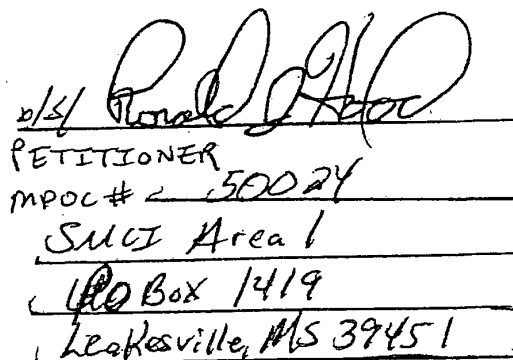 /s/ Ronald J Hood
PETITIONER
MPOC# 50024
SMCI Area 1
PO Box 1419
Leakesville, MS 39451